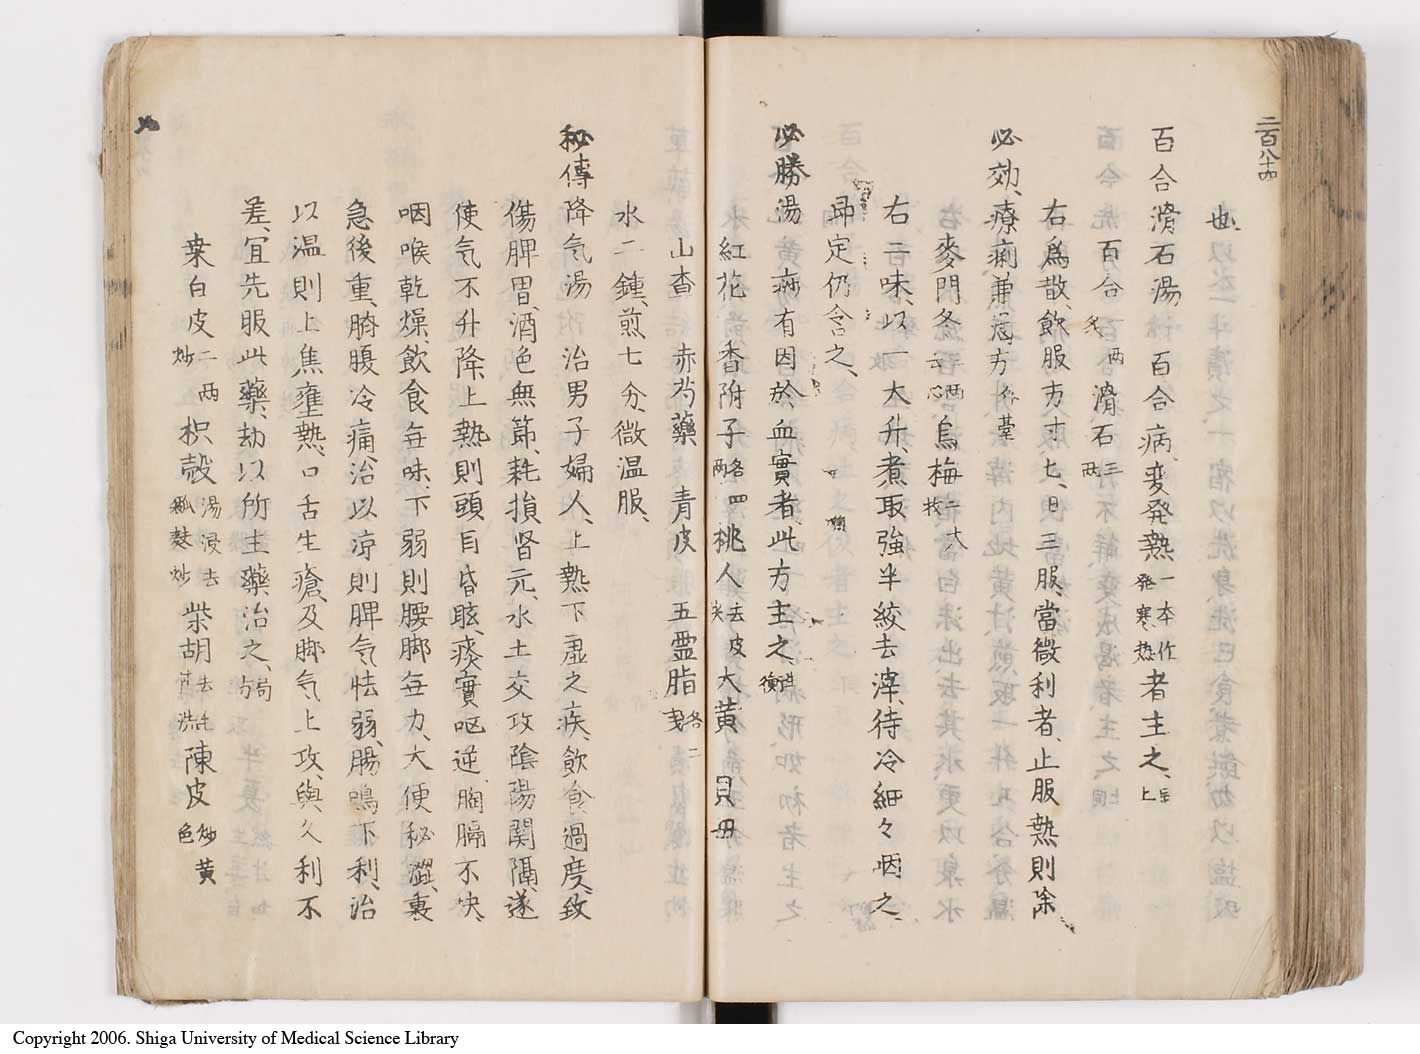 二百八十四
也、
百合滑石湯　百合病、変発熱一本作発寒熱者主之、上仝
百合炙一両　滑石三両
右為散、飲服方寸七、日三服、當微利者、止服熱則除
必効、療痢兼渇方外臺
麥門冬三両去心烏梅二大枚
右二味、以一大升、煮取強半絞去滓、待冷細々咽之、
即定仍含之、
必勝湯　病有因於血實者、此方主之、
紅花　香附子各四両　桃人去皮尖　大黄　貝母
山査　赤芍藥　青皮　五霊脂各二戔
水二鍾、煎七分、微温服、
秘傳降气湯　治男子婦人、上熱下虚之疾、飲食過度、致
傷脾胃、酒色無節、耗損腎元、水土交攻、陰陽関隔、遂
使气不升降、上熱則頭目昏眩、痰實呕逆、胸膈不快、
咽喉乾燥、飲食毎味、下弱則腰脚毎力、大便秘澀、裏
急後重、臍腹冷痛、治以凉則脾气怯弱、腸鳴下利、治
以温則上焦壅熱、口舌生瘡、及脚气上攻、與久利不
差、宜先服此藥、却以所主藥治之、局
桒白皮二両炒　枳殻湯浸去瓤麩炒　柴胡去毛洗　陳皮炒色黄
Copyright 2006. Shiga University of Medical Science Library